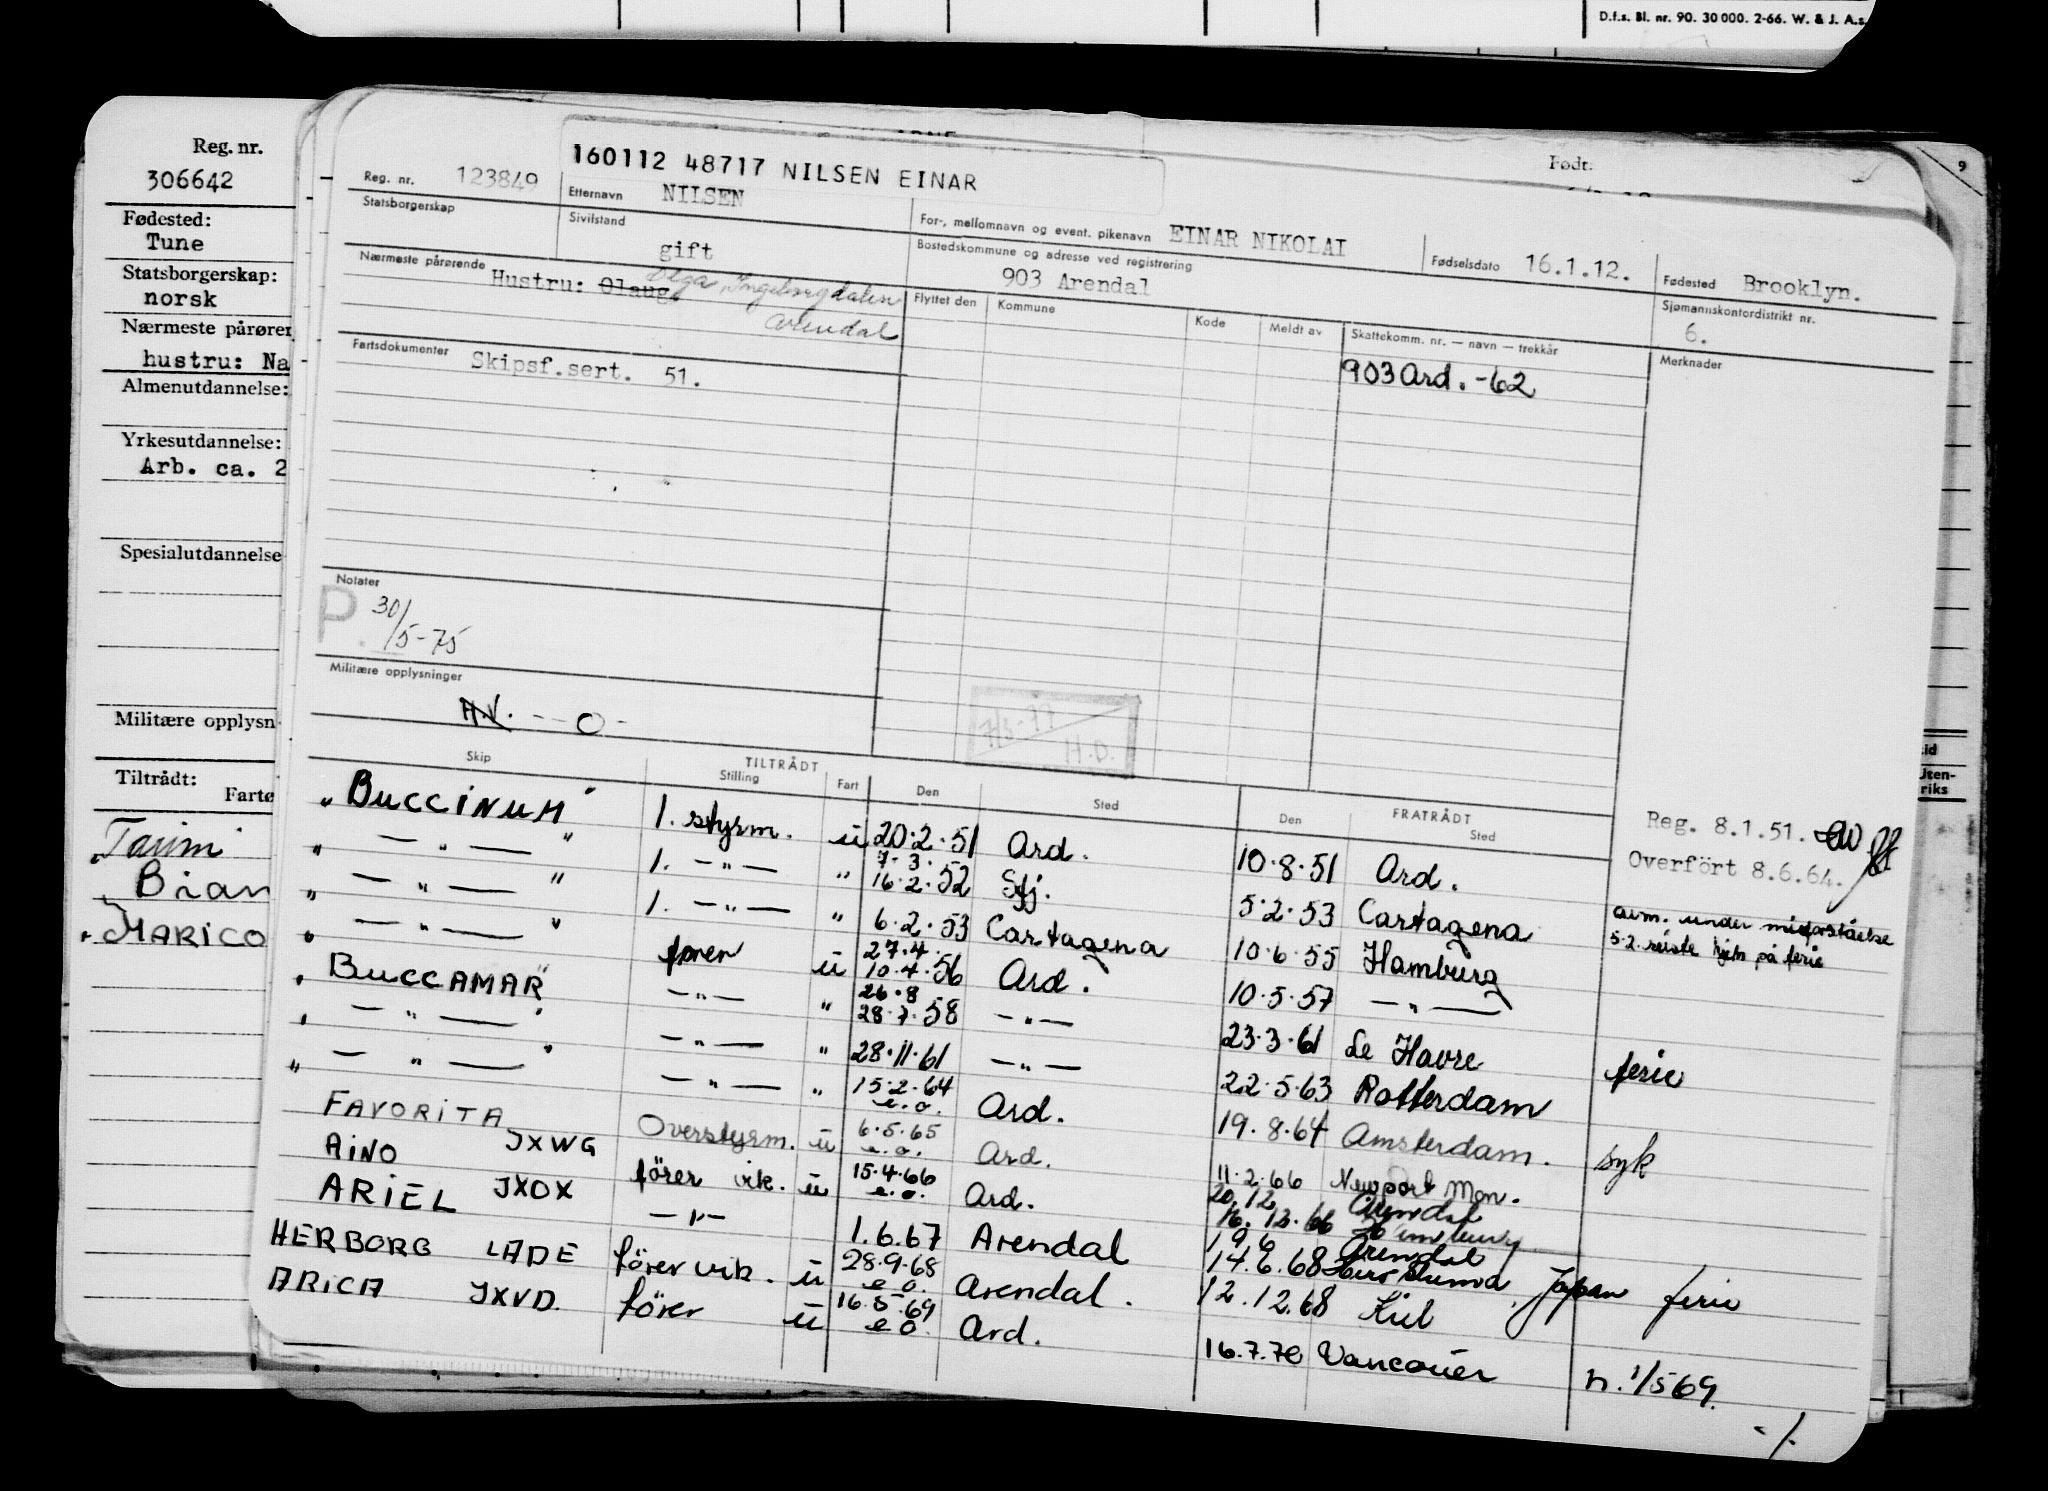 D.f.s. Bl. nr. 90. 30 000. 2-66. W. & J. A.s.
Reg. nr.
306642
Fødested:
Tune
Statsborgerskap:
norsk
Nærmeste pårører
hustru: Na
Almenutdannelse:
Yrkesutdannelse:
Arb. ca. 2
Spesialutdannelse
Militære opplysn
Tiltrådt:
Fartø
Bian
MARICO
Født:
9
160112 48717 NILSEN EINAR
Reg. nr. 123849 Etternavn NILSEN For-, mellomnavn og event. pikenavn EINAR NIKOLAI Fødselsdato 16.1.12. Fødested Brooklyn.
Statsborgerskap Sivilstand gift Bostedskommune og adresse ved registrering 903 Arendal Sjømannskontordistrikt nr. 6.
Nærmeste pårørende Hustru: Olaug Olga, Ingeborgdalen
Arendal
Flyttet den Kommune Kode Meldt av Skattekomm. nr. — navn — trekkår Merknader
903 Ard. -62
Fartsdokumenter Skipsf.sert. 51.
Notater
P. 30/5-75
Militære opplysninger
A.V. - - O -
7/3-77
H.O.
Skip TILTRÅDT Stilling Fart Den Sted FRATRÅDT Den Sted
Reg. 8.1.51.
Overfört 8.6.64.
"BUCCINUM" 1. styrm. u 20.2.51 Ard. 10.8.51 Ard.
" — " — " 1. — " — " 7.3. 16.2.52 Sfj. 5.2.53 Cartagena avm. under misforståelse
" — " — " 1. — " — " 6.2.53 Cartagena 10.6.55 Hamburg 5.2. reiste hjem på ferie
" — " — " fører u 27.4. 10.4.56 Ard. 10.5.57 — " —
" BUCCAMAR " — " — " 26.8 28.7.58 — " — 23.3.61 Le Havre ferie
" — " — " — " — " 28.11.61 — " — 22.5.63 Rotterdam
" — " — " — " — " 15.2.64 e.o. Ard. 19.8.64 Amsterdam. syk
FAVORITA JXWG Overstyrm. u 6.5.65 e.o. Ard. 11.2.66 Newport Mon.
AINO JXOX fører vik. u 15.4.66 e.o. Ard. 20.12 Arendal
16.12.66
ARIEL — " — 1.6.67 Arendal 19 6 Arendal
14.6.68 Japan ferie
HERBORG LADE fører vik. u 28.9.68 e.o. Arendal. 12.12.68 Kiel
ARICA JXVD. fører u 16.5.69 e.o. Ard. 16.7.70 Vancouver n. 1/5 69.